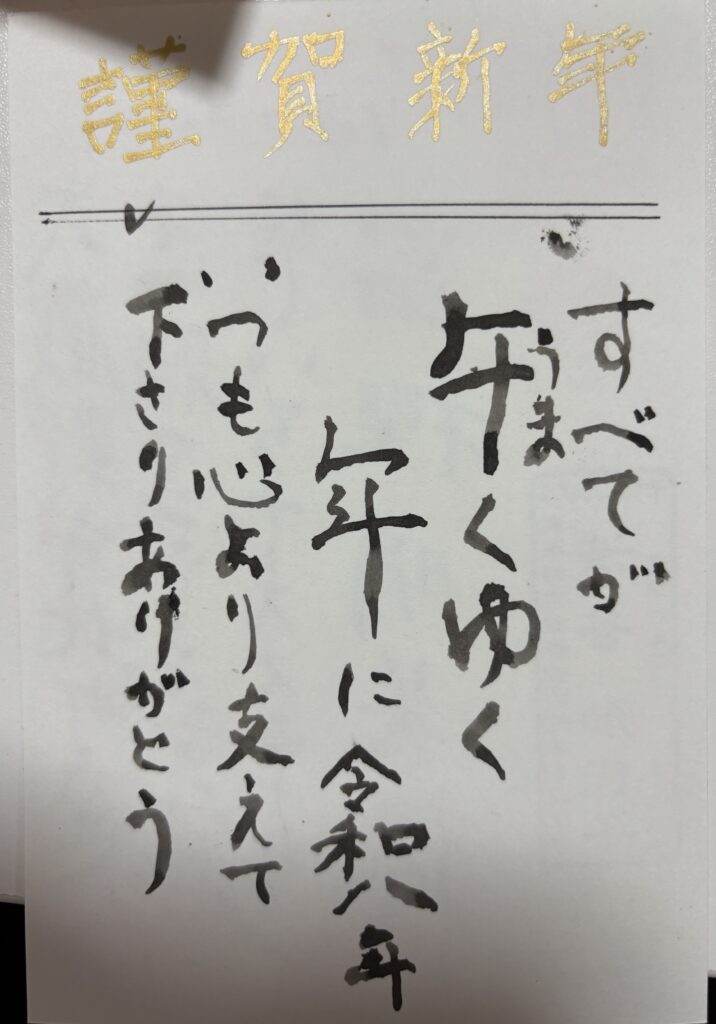 謹賀新年
すべてが
午くゆく
うま
年に令和八年
いつも心より支えて
下さりありがとう